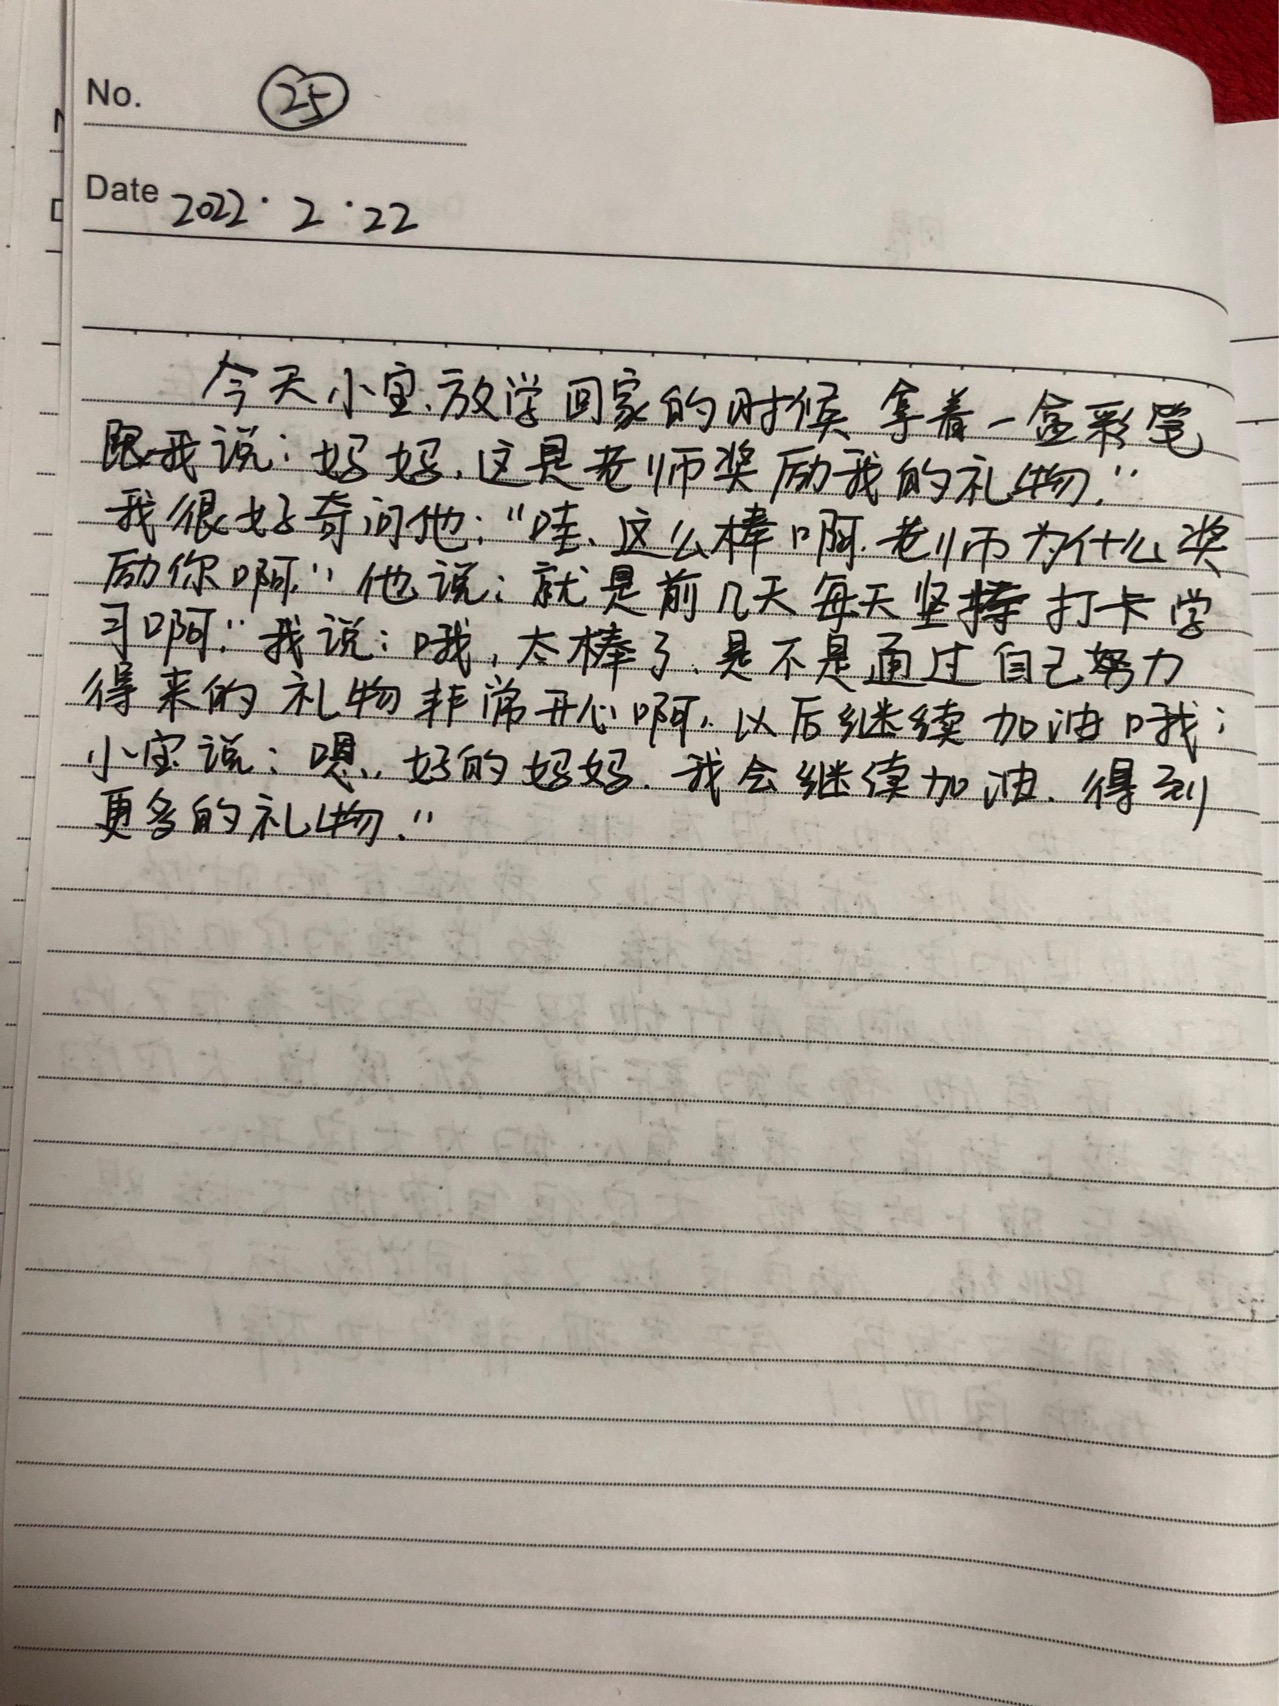 No. 25
Date 2022.2.22
今天小宝、放学回家的时候 拿着一盒彩笔
跟我说：妈妈，这是老师奖励我的礼物."
我很好奇问他："哇、这么棒啊.老师为什么奖
励你啊." 他说：就是前几天每天坚持打卡学
习啊."我说：哦，太棒了.是不是通过自己努力
得来的礼物非常开心啊.以后继续加油哦；
小宝说：嗯..好的妈妈.我会继续加油.得到
更多的礼物."